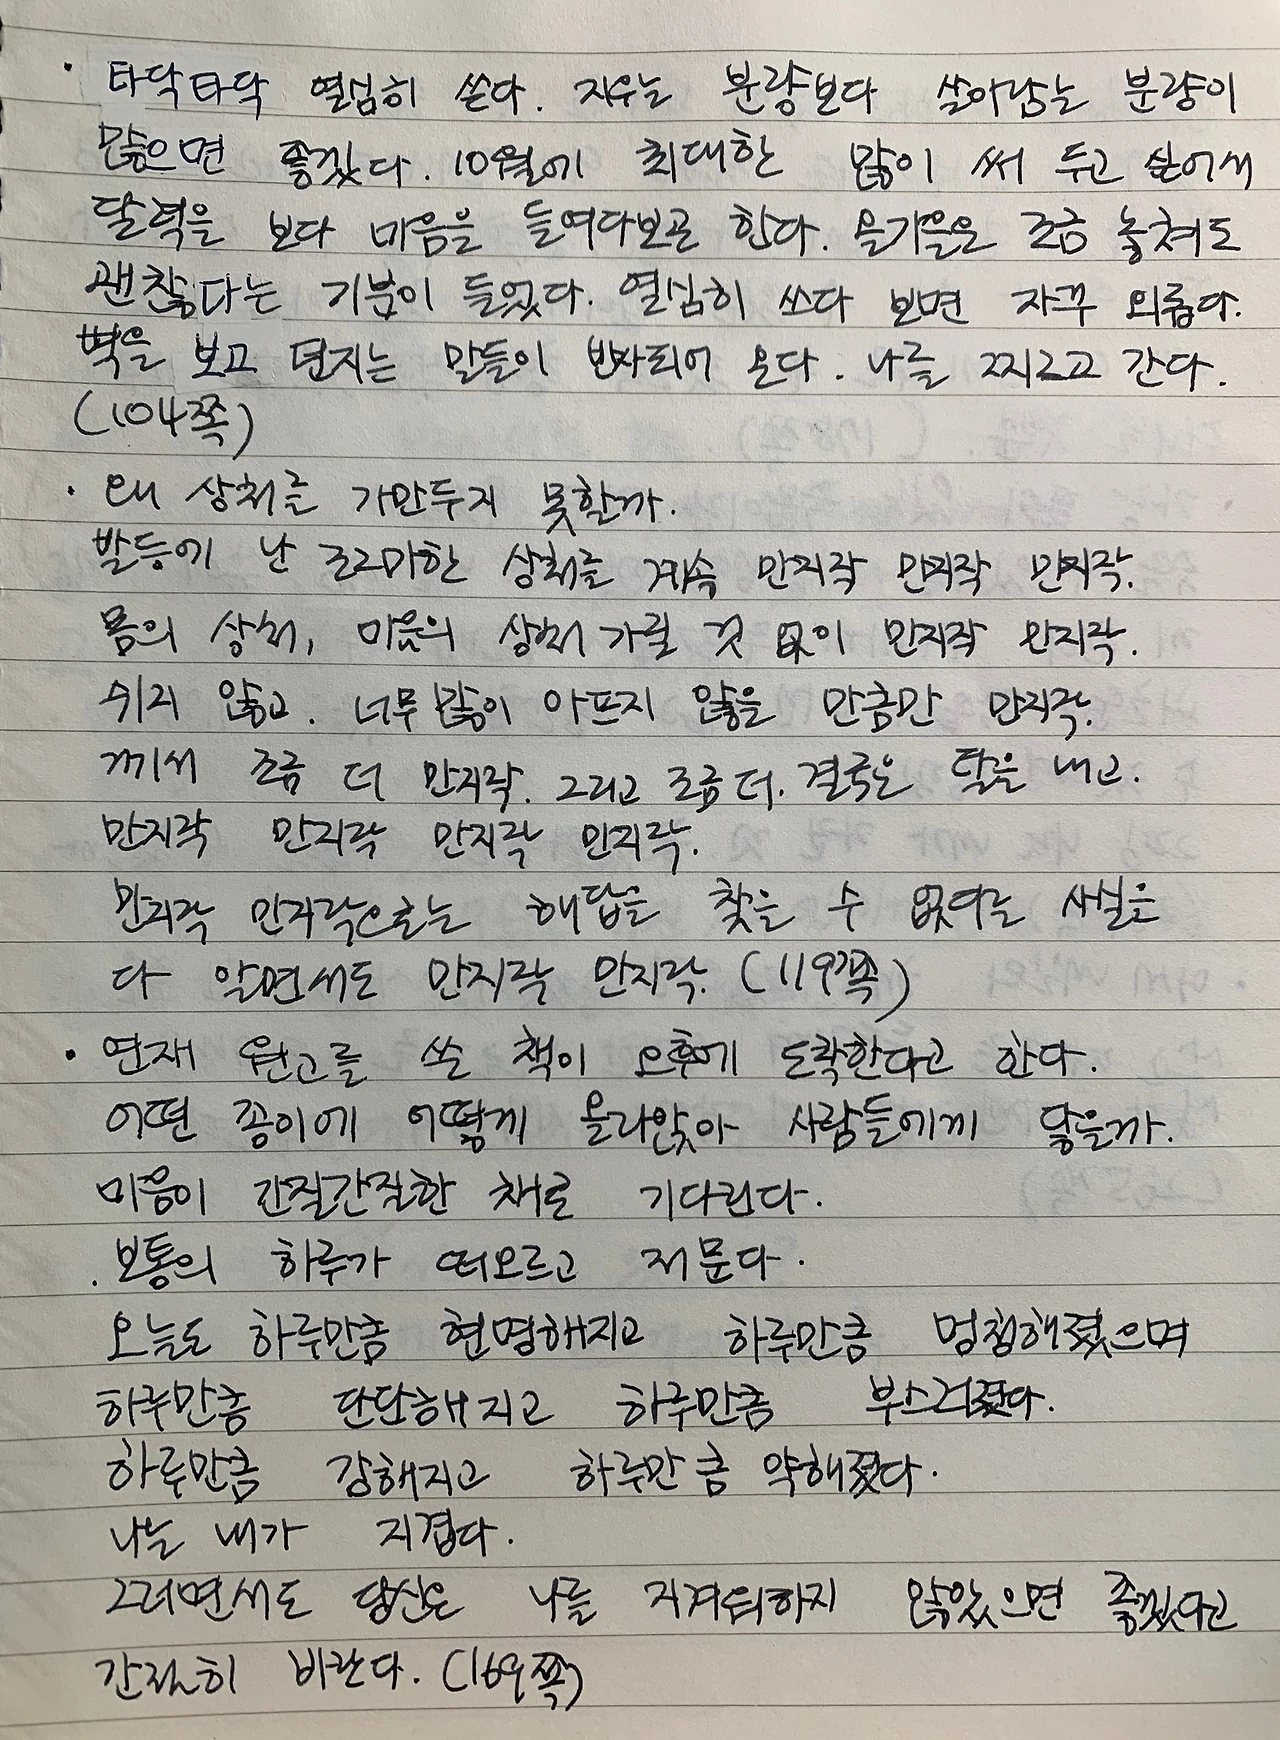 · 타닥타닥 열심히 쓴다. 지우는 분량보다 살아남는 분량이
많으면 좋겠다. 10월에 최대한 많이 써 두고 싶어서
달력을 보다 마음을 들여다보곤 한다. 올가을은 조금 놓쳐도
괜찮다는 기분이 들었다. 열심히 쓰다 보면 자꾸 외롭다.
벽을 보고 던지는 말들이 반사되어 온다. 나를 찌르고 간다.
(104쪽)
· 왜 상처를 가만두지 못할까.
발등에 난 조그마한 상처를 계속 만지작 만지작 만지작.
몸의 상처, 마음의 상처 가릴 것 없이 만지작 만지작.
쉬지 않고. 너무 많이 아프지 않을 만큼만 만지작.
깨서 조금 더 만지작. 그리고 조금 더. 결국은 탈을 내고.
만지작 만지작 만지작 만지작.
만지작 만지작으로는 해답을 찾을 수 없다는 사실을
다 알면서도 만지작 만지작. (119쪽)
· 연재 원고를 쓴 책이 오후에 도착한다고 한다.
어떤 종이에 어떻게 올라앉아 사람들에게 닿을까.
마음이 간질간질한 채로 기다린다.
. 보통의 하루가 떠오르고 저문다.
오늘도 하루만큼 현명해지고 하루만큼 멍청해졌으며
하루만큼 단단해지고 하루만큼 부스러졌다.
하루만큼 강해지고 하루만큼 약해졌다.
나는 내가 지겹다.
그러면서도 당신은 나를 지겨워하지 않았으면 좋겠다고
간절히 바란다. (169쪽)